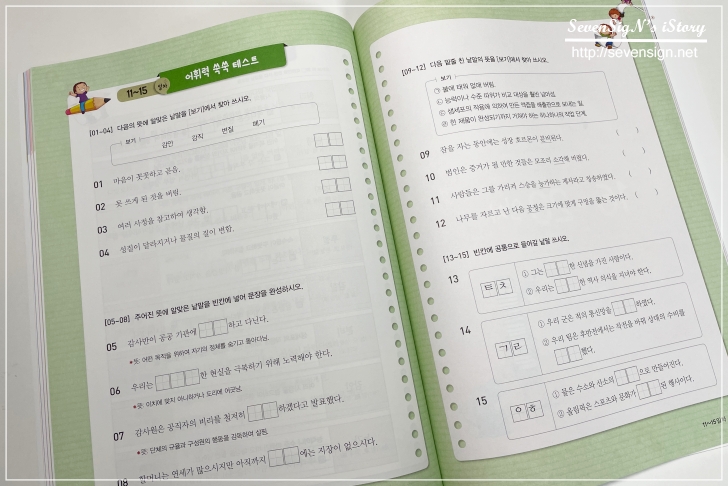 SevenSigN's iStory
http://sevensign.net
11~15 일차
어휘력 쑥쑥 테스트
[01~04] 다음의 뜻에 알맞은 낱말을 [보기]에서 찾아 쓰시오.
보기
감안 강직 변질 폐기
01 마음이 꼿꼿하고 곧음.
02 못 쓰게 된 것을 버림.
03 여러 사정을 참고하여 생각함.
04 성질이 달라지거나 물질의 질이 변함.
[05~08] 주어진 뜻에 알맞은 낱말을 빈칸에 넣어 문장을 완성하시오.
05 감사반이 공공 기관에 하고 다닌다.
뜻: 어떤 목적을 위하여 자기의 정체를 숨기고 돌아다님.
06 우리는 한 현실을 극복하기 위해 노력해야 한다.
뜻: 이치에 맞지 아니하거나 도리에 어긋남.
07 감사원은 공직자의 비리를 철저히 하겠다고 발표했다.
뜻: 단체의 규율과 구성원의 행동을 감독하여 살핌.
08 할머니는 연세가 많으시지만 아직까지 에는 지장이 없으시다.
[09~12] 다음 밑줄 친 낱말의 뜻을 [보기]에서 찾아 쓰시오.
보기
㉠ 불에 태워 없애 버림.
㉡ 능력이나 수준 따위가 비교 대상을 훨씬 넘어섬.
㉢ 샘세포의 작용에 의하여 만든 액즙을 배출관으로 보내는 일.
㉣ 한 제품이 완성되기까지 거쳐야 하는 하나하나의 작업 단계.
09 잠을 자는 동안에는 성장 호르몬이 분비된다. ( )
10 범인은 증거가 될 만한 것들은 모조리 소각해 버렸다. ( )
11 사람들은 그를 가리켜 스승을 능가하는 제자라고 칭송하였다. ( )
12 나무를 자르고 난 다음 공정은 크기에 맞게 구멍을 뚫는 것이다. ( )
[13~15] 빈칸에 공통으로 들어갈 낱말을 쓰시오.
13 ㅌ ㅊ
① 그는 한 신념을 가진 사람이다.
② 우리는 한 역사 의식을 지녀야 한다.
14 ㄱ ㄹ
① 우리 군은 적의 통신망을 하였다.
② 우리 팀은 후반전에서는 작전을 바꿔 상대의 수비를
했다.
15 ㅇ ㅎ
① 물은 수소와 산소의 으로 만들어진다.
② 올림픽은 스포츠와 문화가 된 행사이다.